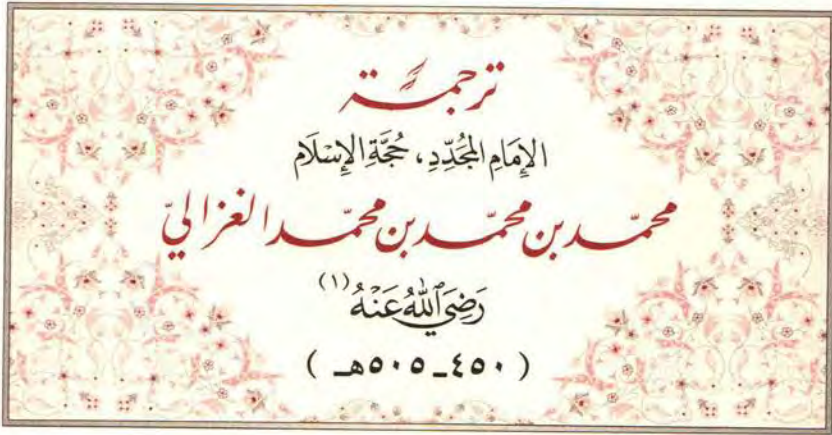 ترجمة
الإِمَامِ المُجَدِّدِ، حُجَّةِ الإِسْلَام
محمّد بن محمّد بن محمّد الغزاليّ
رَضِيَ ٱللَّهُ عَنْهُ (١)
( ٤٥٠ - ٥٠٥ هـ )